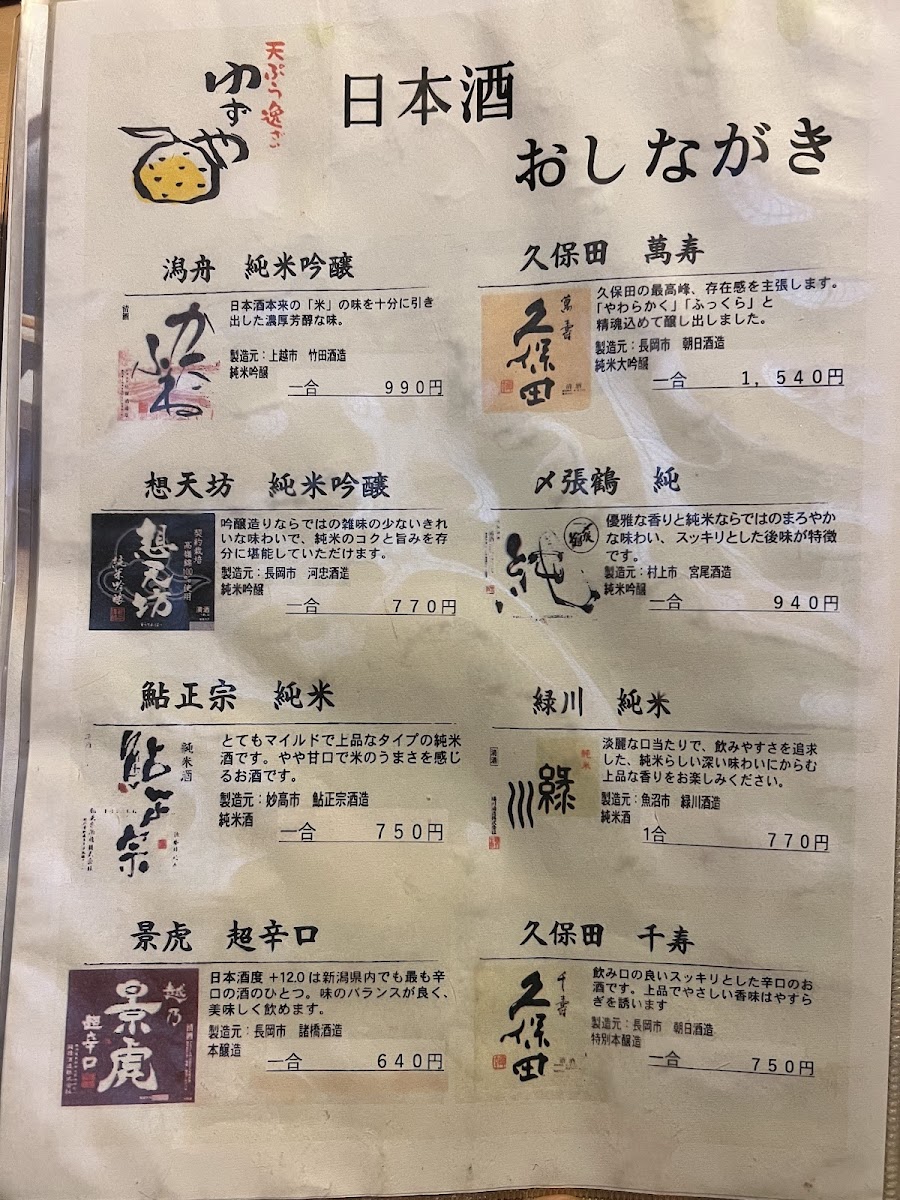 天ぷら逸ざ
ゆずや
日本酒
おしながき
潟舟　純米吟醸
清酒
かたふね
日本酒本来の「米」の味を十分に引き
出した濃厚芳醇な味。
製造元：上越市　竹田酒造
純米吟醸
一合　990円
久保田　萬寿
萬寿
久保田
清酒
久保田の最高峰、存在感を主張します。
「やわらかく」「ふっくら」と
精魂込めて醸し出しました。
製造元：長岡市　朝日酒造
純米大吟醸
一合　1,540円
想天坊　純米吟醸
契約栽培
高嶺錦100%使用
想天坊
純米吟醸
清酒
吟醸造りならではの雑味の少ないきれ
いな味わいで、純米のコクと旨みを存
分に堪能していただけます。
製造元：長岡市　河忠酒造
純米吟醸
一合　770円
〆張鶴　純
純
優雅な香りと純米ならではのまろやか
な味わい、スッキリとした後味が特徴
です。
製造元：村上市　宮尾酒造
純米吟醸
一合　940円
鮎正宗　純米
純米酒
鮎正宗
鮎正宗酒造株式会社
とてもマイルドで上品なタイプの純米
酒です。やや甘口で米のうまさを感じ
るお酒です。
製造元：妙高市　鮎正宗酒造
純米酒
一合　750円
緑川　純米
純米
清酒
緑川
緑川酒造株式会社
淡麗な口当たりで、飲みやすさを追求
した、純米らしい深い味わいにからむ
上品な香りをお楽しみください。
製造元：魚沼市　緑川酒造
純米酒
1合　770円
景虎　超辛口
越乃
景虎
超辛口
清酒
日本酒度 +12.0 は新潟県内でも最も辛
口の酒のひとつ。味のバランスが良く、
美味しく飲めます。
製造元：長岡市　諸橋酒造
本醸造
一合　640円
久保田　千寿
千寿
久保田
清酒
飲み口の良いスッキリとした辛口のお
酒です。上品でやさしい香味はやすら
ぎを誘います
製造元：長岡市　朝日酒造
特別本醸造
一合　750円